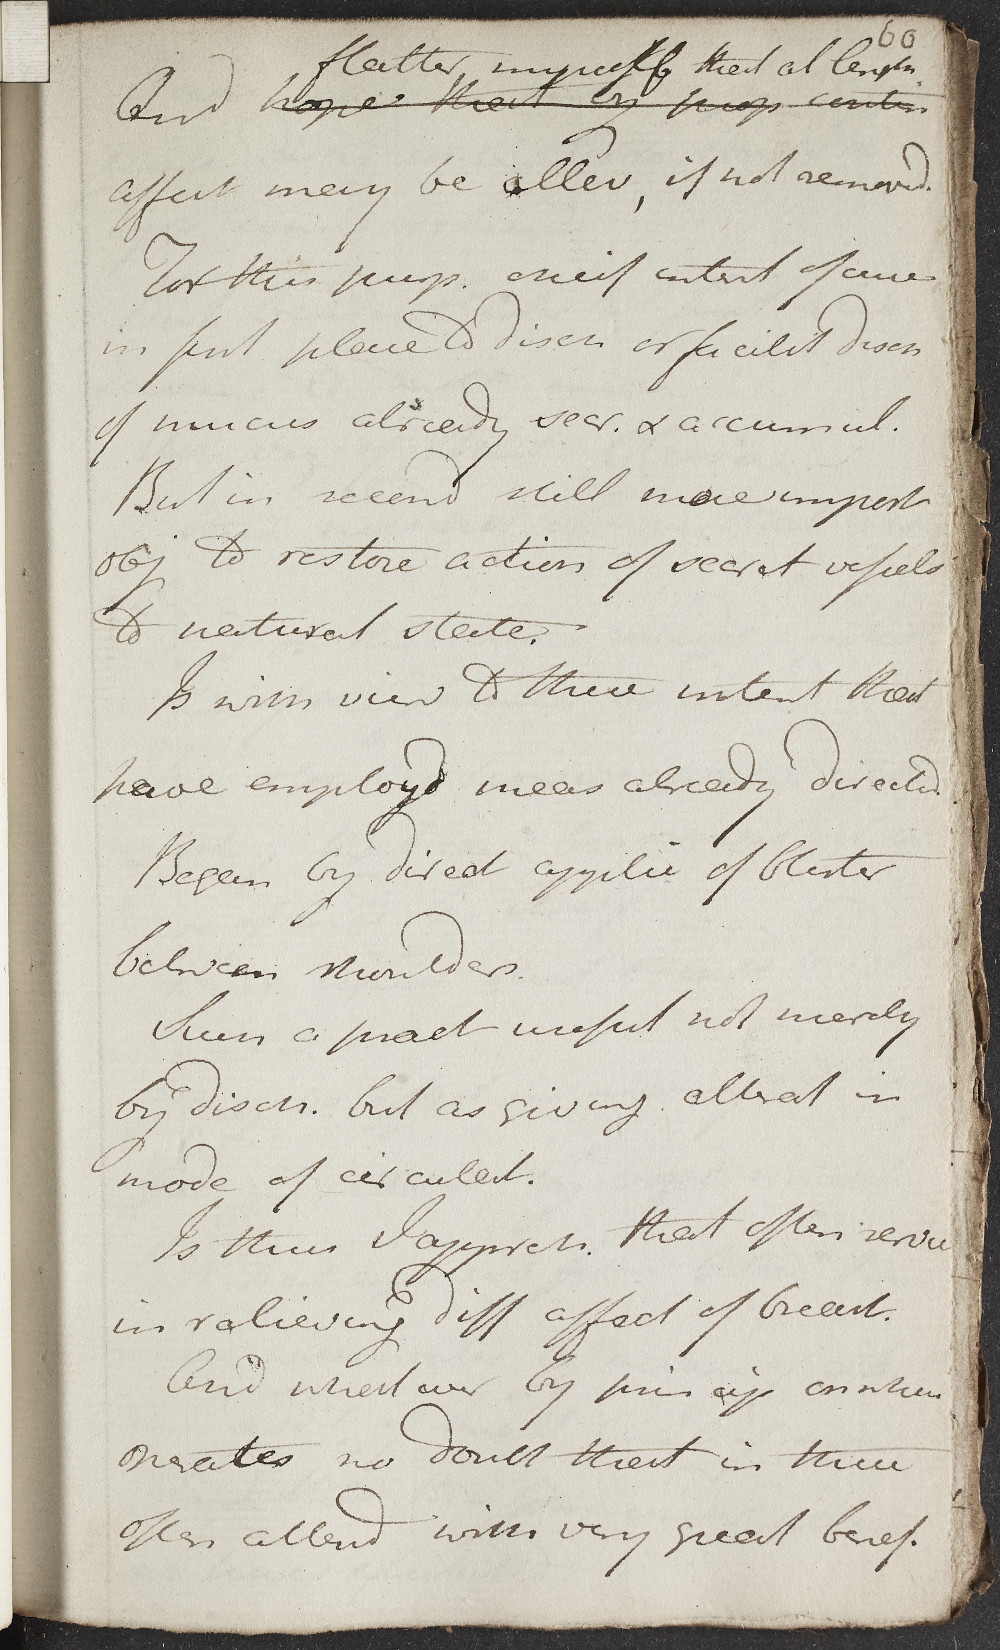 60
flatter myself that at length
And hope that by prop contin
affect may be allev, if not removd.
For this purp. chief intent of cure
in first place to disch or facilit disch
of mucus already secr. & accumul.
But in second still more import
obj to restore action of secret vessels
to natural state.
Is with view to these intent that
have employd meas already directed.
Began by direct applic of blister
between shoulders.
Such a pract useful not merely
by disch. but as giving alterat in
mode of circulat.
Is thus I appreh. that often service
in relieving diff affect of breast.
And whatever by princip on which
operates no doubt that in these
often attend with very great benef.